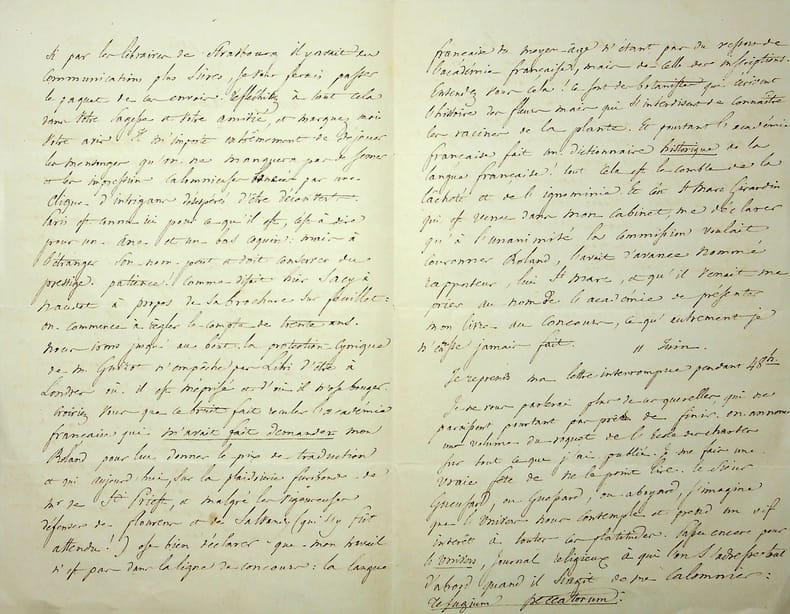 Si par les libraires de Strasbourg il y avait des
communications plus sûres, je vous ferais passer
le paquet de ces envois. réfléchissez à tout cela
dans votre sagesse et votre amitié, et marquez moi
votre avis. Il m'importe extrêmement de déjouer
les mensonges qu'on ne manquera pas de semer
et les impressions calomnieuses par une
clique d'intrigans désespérés d'être
Paris est connu ici pour ce qu'il est, c'est à dire
pour un âne et un bas coquin: mais à
l'étranger son nom peut et doit conserver du
prestige. patience! comme disait hier Sacy à
à propos de sa brochure sur
on commence à régler le compte de trente ans.
nous irons jusqu'au bout. la protection cynique
de m. Guizot n'empêche pas Libri d'être à
Londres où il est méprisé et d'où il n'ose bouger.
Croiriez vous que ce bruit fait reculer l'académie
française qui m'avait fait demander mon
Roland pour lui donner le prix de traduction
et qui aujourd'hui, sur la plaidoirie furibonde de
mr de St Priest, et malgré les vigoureuses
défenses de Flourens et de Salvandy (qui s'y fût
attendu!) ose bien déclarer que mon travail
n'est pas dans la ligne du concours: la langue
française du moyen-âge n'étant pas du ressort de
l'académie française, mais de celle des inscriptions.
Entendez vous cela! Ce sont des botanistes qui écrivent
l'histoire des fleurs mais qui s'interdisent de connaître
les racines de la plante. Et pourtant l'académie
française fait un dictionnaire historique de la
langue française! tout cela est le comble de la
lâcheté et de l'ignominie. Et c'est St Marc Girardin
qui est venu dans mon cabinet, me déclarer
qu'à l'unanimité la commission voulait
couronner Roland, l'avait d'avance nommé
rapporteur, lui St Marc, et qu'il venait me
prier au nom de l'académie de présenter
mon livre au concours, ce qu'autrement je
n'eusse jamais fait.
11 Juin.
Je reprends ma lettre interrompue pendant 48h.
Je ne vous parlerai plus de ces querelles, qui ne
paraissent pourtant pas près de finir. on annonce
un volume du roquet de l'école des chartes
sur tout ce que j'ai publié. Je me fais une
vraie fête de ne le point lire. le sieur
Gueusard, ou Guessard, ou aboyard, s'imagine
que l'Univers nous contemple et prend un vif
intérêt à toutes ces platitudes. passe encore pour
l'Univers, journal religieux à qui l'on s'adresse tout
d'abord quand il s'agit de me calomnier:
refugium peccatorum.